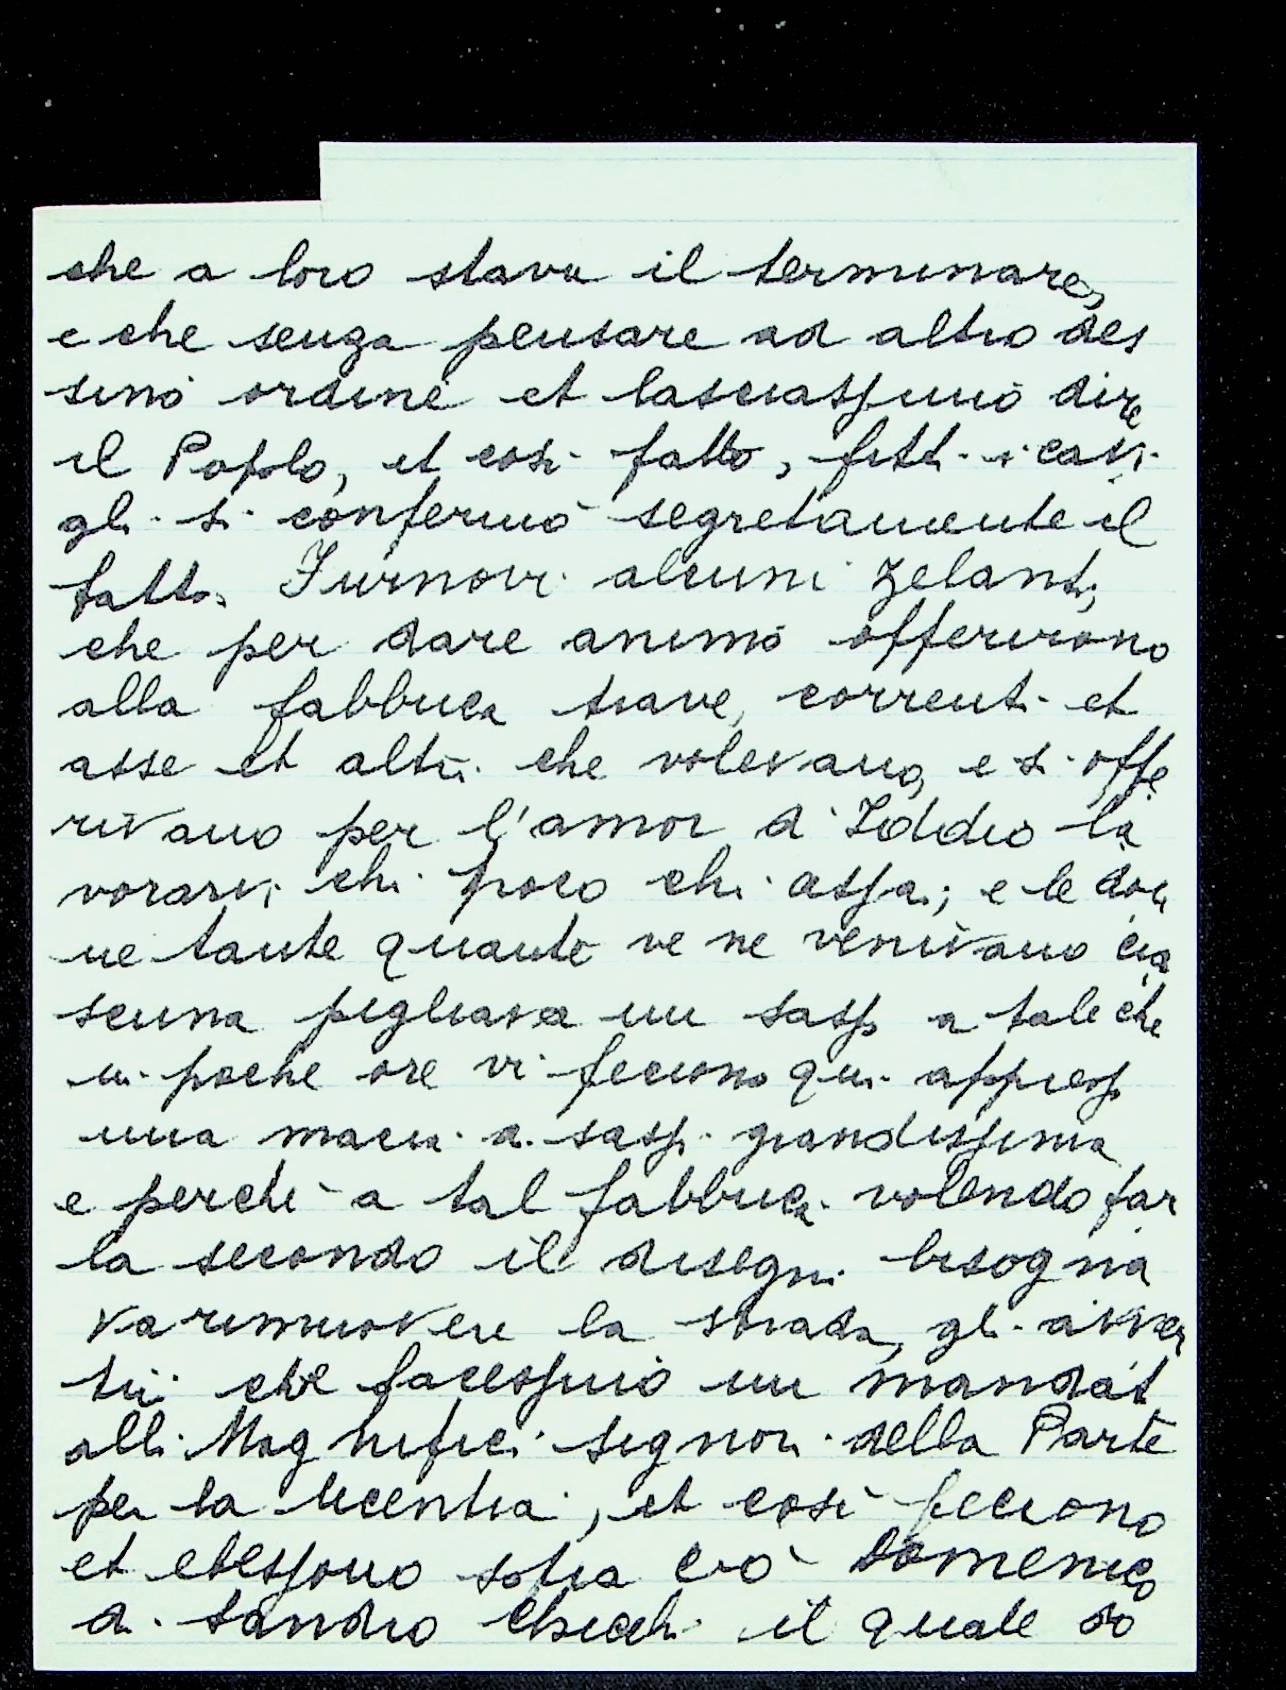 che a loro stava il terminare,
e che senza pensare ad altro des
sino ordine et lasciassino dire
il Popolo, et così fatto, fatti i casi
gli si confermò segretamente il
fatto. Furnovi alcuni zelanti,
che per dare animo offerirono
alla fabbrica trave, correnti et
asse et altri che volevano, e si offe
rivano per l'amor d'Iddio la
vorarvi chi poco chi assai; e le don
ne tante quante ve ne venivano cia
scuna pigliava un sasso a tale che
in poche ore vi feciono qui appresso
una macia di sassi grandissima
e perché a tal fabbrica volendo far
la secondo il disegni bisogna
va rimuovere la strada, gli avver
tii che facessino un mandat
alli Magnifici signori della Parte
per la licentia, et così feciono
et elessono sopra ciò Domenico
di Sandro Checchi il quale do